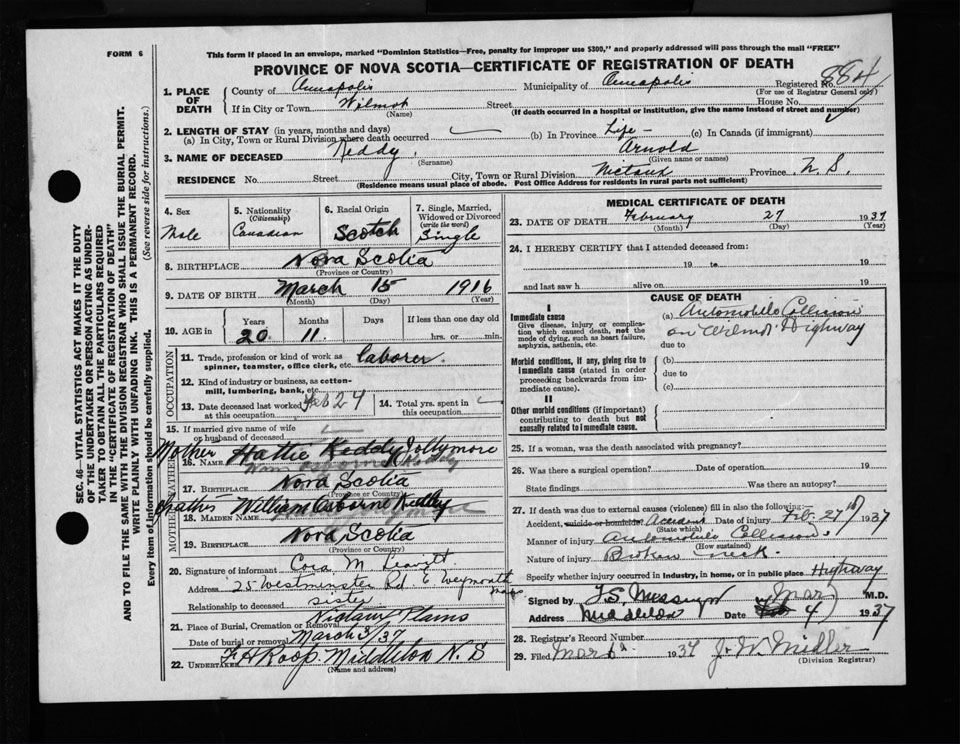 FORM 6
This form if placed in an envelope, marked "Dominion Statistics—Free, penalty for improper use $300," and properly addressed will pass through the mail "FREE"
PROVINCE OF NOVA SCOTIA—CERTIFICATE OF REGISTRATION OF DEATH
1. PLACE OF DEATH County of Annapolis Municipality of Annapolis Registered No. 884
(For use of Registrar General only)
If in City or Town Wilmot Street House No.
(Name) (If death occurred in a hospital or institution, give the name instead of street and number)
2. LENGTH OF STAY (in years, months and days)
(a) In City, Town or Rural Division where death occurred (b) In Province Life — (c) In Canada (if immigrant)
3. NAME OF DECEASED Keddy, Arnold
(Surname) (Given name or names)
RESIDENCE No. Street City, Town or Rural Division Nictaux Province N. S.
(Residence means usual place of abode. Post Office Address for residents in rural parts not sufficient)
4. Sex Male
5. Nationality (Citizenship) Canadian
6. Racial Origin Scotch
7. Single, Married, Widowed or Divorced (write the word) Single
8. BIRTHPLACE Nova Scotia
(Province or Country)
9. DATE OF BIRTH March 15 1916
(Month) (Day) (Year)
10. AGE in Years Months Days If less than one day old
20 11 hrs. or min.
OCCUPATION
11. Trade, profession or kind of work as spinner, teamster, office clerk, etc. laborer.
12. Kind of industry or business, as cotton-mill, lumbering, bank, etc.
13. Date deceased last worked at this occupation Feb 24
14. Total yrs. spent in this occupation
15. If married give name of wife or husband of deceased
Mother
16. Name Hattie Keddy Jollymore
17. Birthplace Nova Scotia
(Province or Country)
Father William Osborne Keddy
18. Maiden Name
19. Birthplace Nova Scotia
(Province or Country)
MOTHER FATHER
20. Signature of informant Cora M.
Address 25 Westminster Rd E Weymouth Mass
Relationship to deceased sister
21. Place of Burial, Cremation or Removal Nictaux Plains
Date of burial or removal March 3/37
22. Undertaker F. H. Roop. Middleton N. S
(Name and address)
MEDICAL CERTIFICATE OF DEATH
23. DATE OF DEATH February 27 1937
(Month) (Day) (Year)
24. I HEREBY CERTIFY that I attended deceased from:
19 to 19
and last saw h alive on 19
CAUSE OF DEATH
I
Immediate cause
Give disease, injury or complication which caused death, not the mode of dying, such as heart failure, asphyxia, asthenia, etc.
(a) Automobile Collision
on Wilmot Highway
due to
Morbid conditions, if any, giving rise to immediate cause (stated in order proceeding backwards from immediate cause).
(b)
due to
(c)
II
Other morbid conditions (if important) contributing to death but not causally related to immediate cause.
25. If a woman, was the death associated with pregnancy?
26. Was there a surgical operation? Date of operation 19
State findings Was there an autopsy?
27. If death was due to external causes (violence) fill in also the following:—
Accident, suicide or homicide? Accident Date of injury Feb. 27th 1937
(State which)
Manner of injury Automobile Collision
(How sustained)
Nature of injury Broken neck.
Specify whether injury occurred in industry, in home, or in public place Highway
Signed by M.D.
Address Middleton Date Mar 4 1937
28. Registrar's Record Number
29. Filed Mar 1937
(Division Registrar)
SEC. 46—VITAL STATISTICS ACT MAKES IT THE DUTY
OF THE UNDERTAKER OR PERSON ACTING AS UNDER-
TAKER TO OBTAIN ALL THE PARTICULARS REQUIRED
IN THE "CERTIFICATE OF REGISTRATION OF DEATH"
AND TO FILE THE SAME WITH THE DIVISION REGISTRAR WHO SHALL ISSUE THE BURIAL PERMIT.
WRITE PLAINLY WITH UNFADING INK. THIS IS A PERMANENT RECORD.
Every item of information should be carefully supplied. (See reverse side for instructions.)